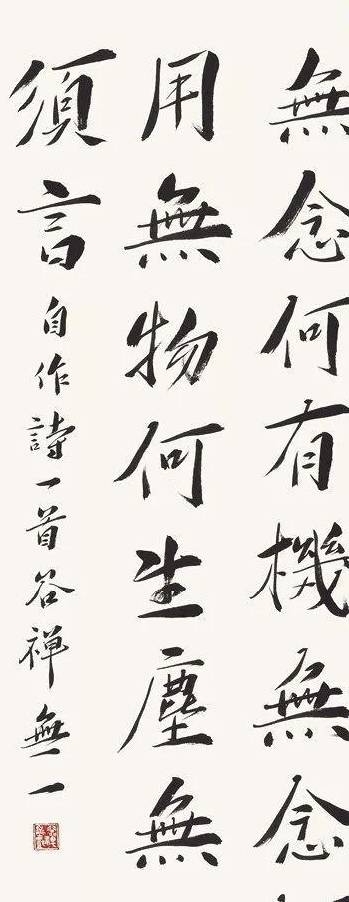 無念何有機無念
用無物何生塵無
須言
自作詩一首谷禅無一